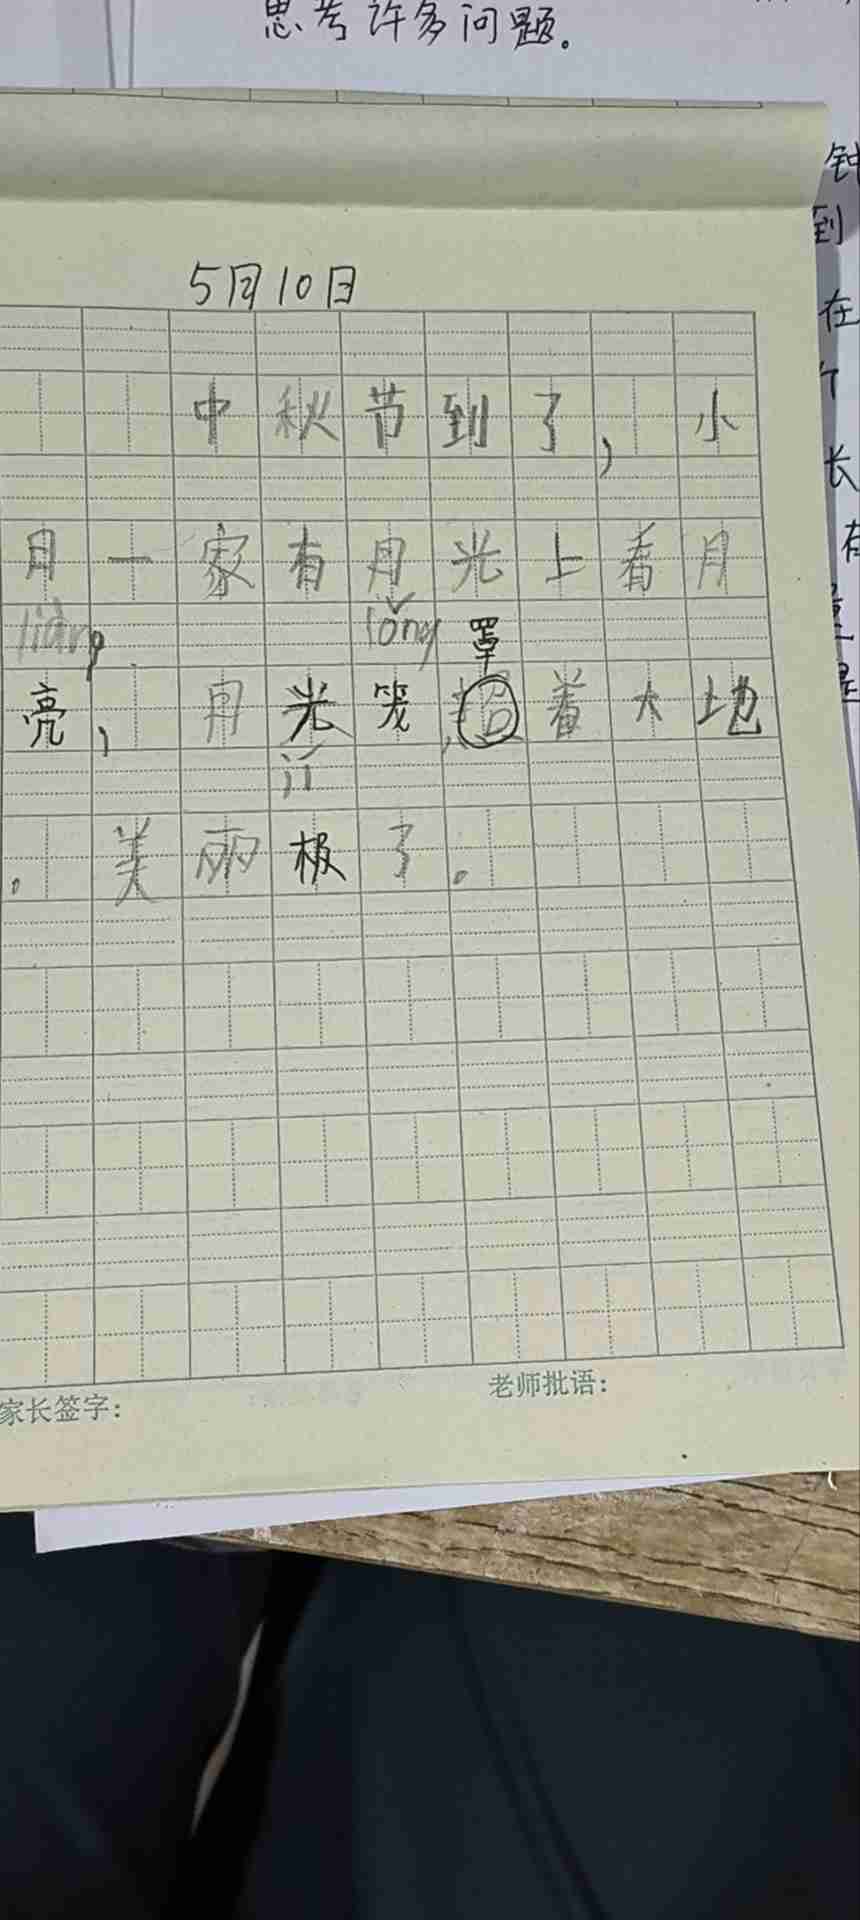 思考许多问题。
钟
到
在
个
长
有
是
5月10日
中秋节到了，小
月一家有月光上看月
liàng lǒng 罩
亮，月光笼超着大地
jí
。美丽极了。
家长签字：
老师批语：